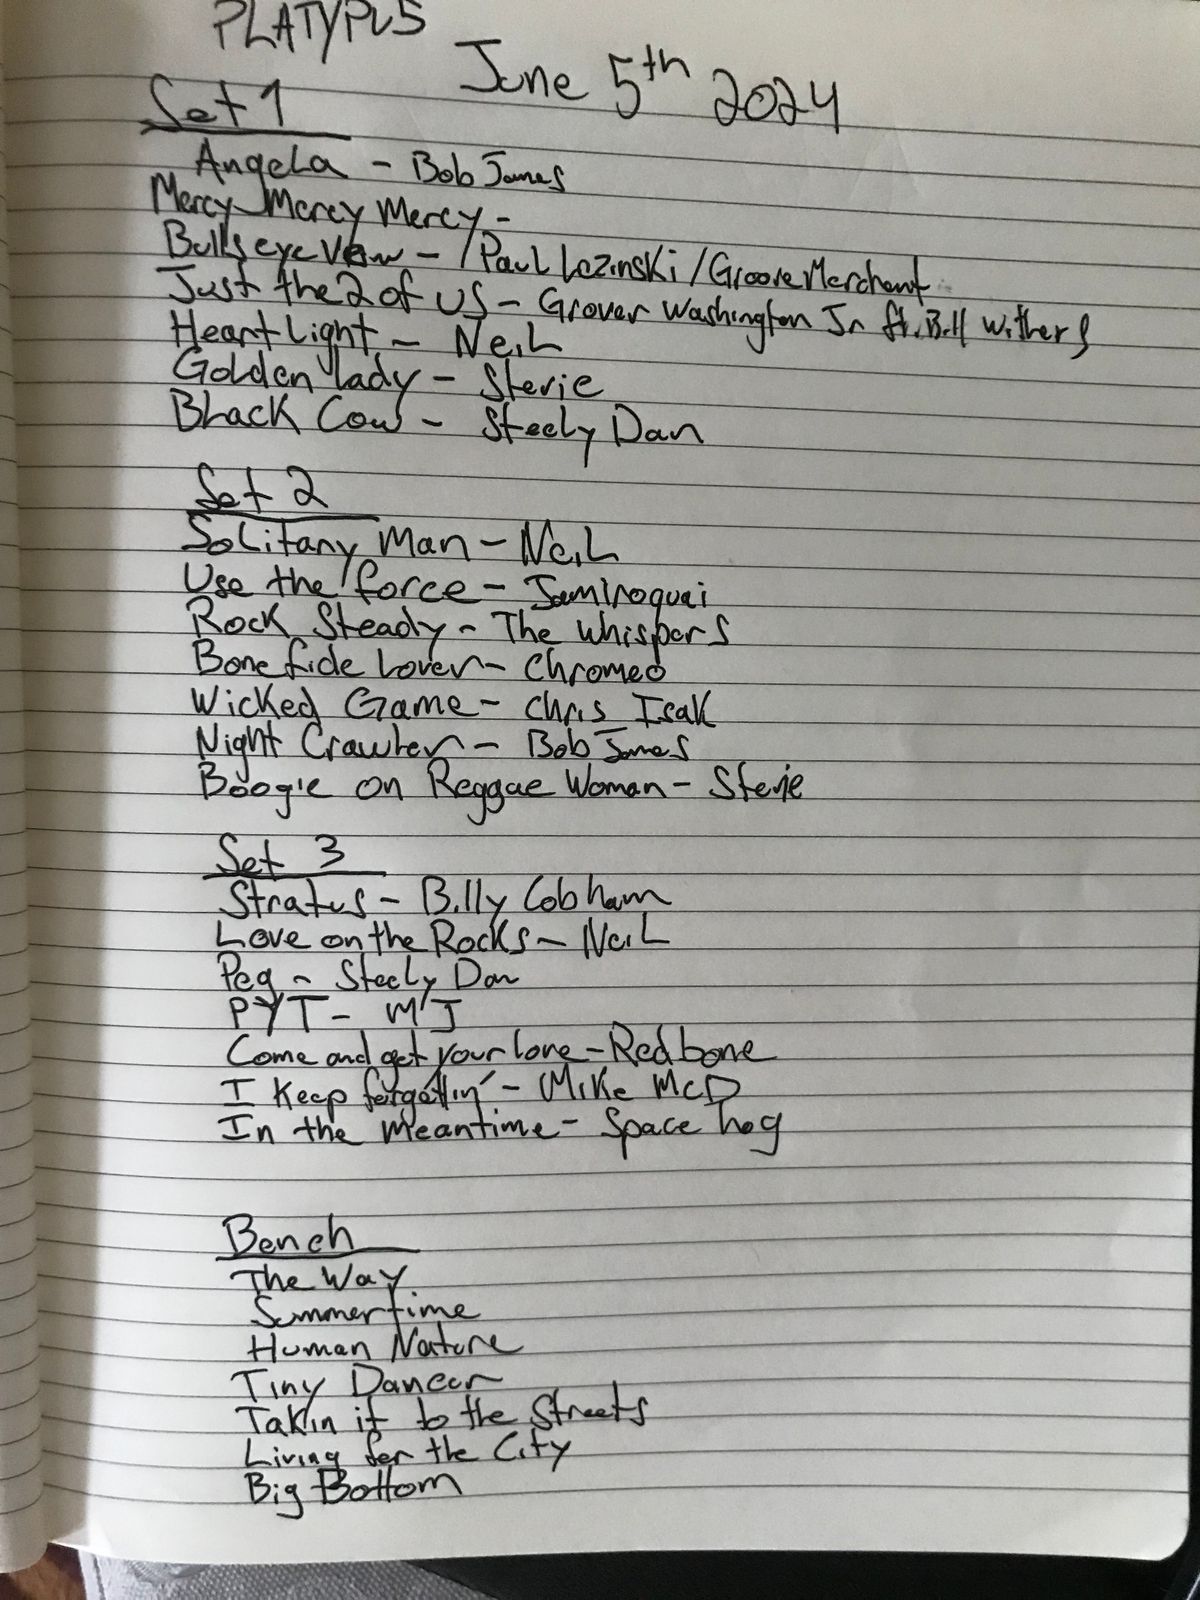 PLATYPUS
June 5th 2024
Set 1
Angela - Bob James
Mercy Mercy Mercy -
Bullseye View - / Paul Lozinski / Groove Merchant
Just the 2 of US - Grover Washington Jr ft. Bill Withers
Heart Light - Neil
Golden lady - Stevie
Black Cow - Steely Dan
Set 2
Solitary Man - Neil
Use the force - Jamiroquai
Rock Steady - The Whispers
Bonefide Lover - Chromeo
Wicked Game - Chris Isak
Night Crawler - Bob James
Boogie on Reggae Woman - Stevie
Set 3
Stratus - Billy Cobham
Love on the Rocks - Neil
Peg - Steely Dan
PYT - MJ
Come and get your love - Redbone
I Keep forgettin' - Mike McD
In the Meantime - Space hog
Bench
The Way
Summertime
Human Nature
Tiny Dancer
Takin it to the Streets
Living for the City
Big Bottom